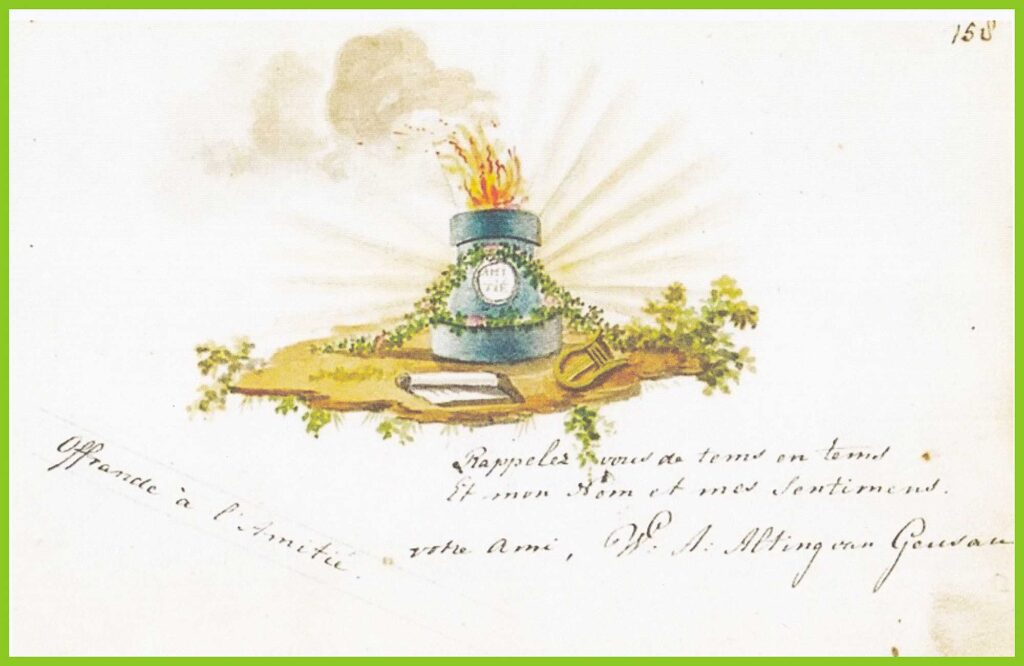 158
AMI
TIÉ
Offrande à l'Amitié.
Rappelez vous de tems en tems
Et mon Nom et mes Sentimens.
votre Ami, W. A: Alting van Geusau